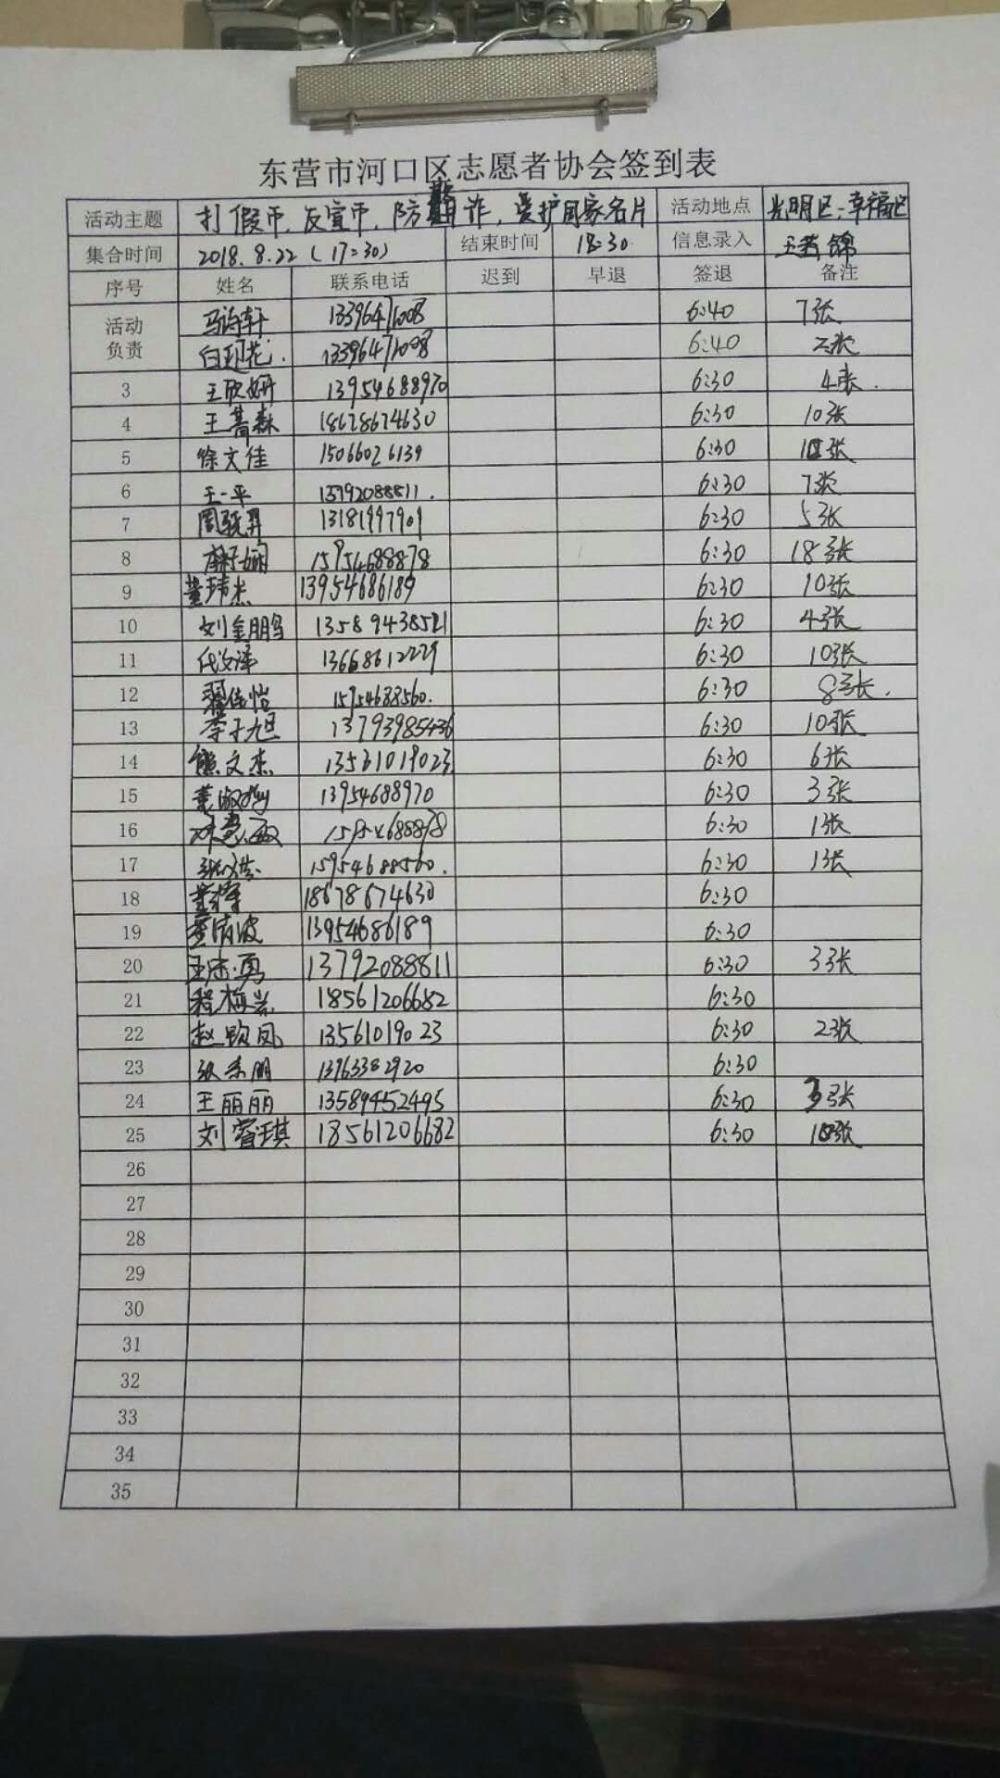 东营市河口区志愿者协会签到表
活动主题 打假币,反宣币,防欺诈,爱护国家名片 活动地点 光明区;幸福区
集合时间 2018.8.22(17:30) 结束时间 18:30 信息录入
序号 姓名 联系电话 迟到 早退 签退 备注
活动负责 马诗轩 13396471008 6:40 7张
13396471008 6:40 2张
3 王欣妍 13954688970 6:30 4张.
4 王蔷森 18678674630 6:30 10张
5 徐文佳 15066026139 6:30
6 王一平 13792088811. 6:30 7张
7 13181997909 6:30 5张
8 15954688878 6:30 18张
9 董玮杰 13954686189 6:30 10张
10 13589438521 6:30 4张
11 代文泽 13668612229 6:30 10张
12 翟佳怡 15954688560. 6:30 8张.
13 李子旭 13793985436 6:30 10张
14 熊文杰 13561019023 6:30 6张
15 13954688970 6:30 3张
16 15954688878 6:30 1张
17 15954688560. 6:30 1张
18 18678674630 6:30
19 董清波 13954686189 6:30
20 王志勇 13792088811 6:30 3张
21 程梅兰 18561206682 6:30
22 13561019023 6:30 2张
23 13963382920 6:30
24 王丽丽 13589452495 6:30 3张
25 刘睿琪 18561206682 6:30 10张
26
27
28
29
30
31
32
33
34
35